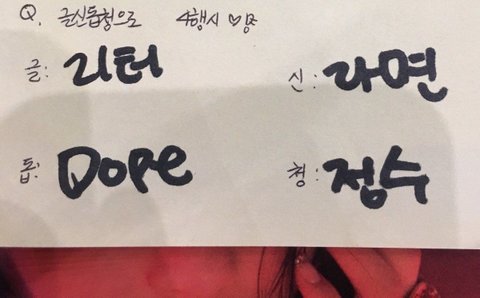 Q. 글신돕청으로 4행시 ♡형
글: 리터
신: 라면
돕: Dope
청: 점수